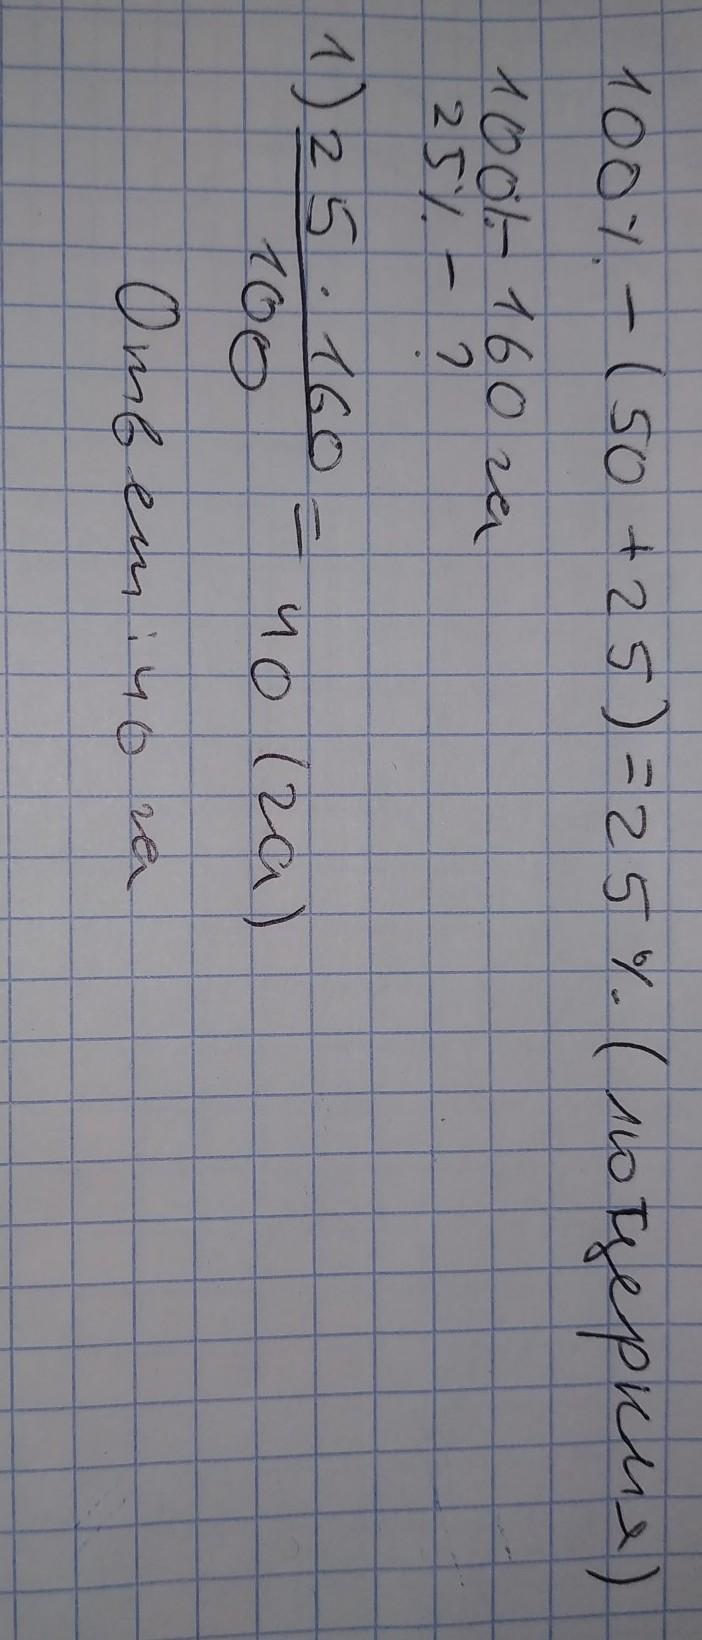 100% - (50 + 25) = 25% (люцерния)
100% - 160 га
25% - ?
1) 25 · 160
100
= 40 (га)
Ответ: 40 га